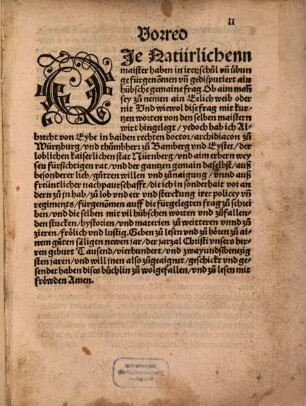 II
Vorred
DIe Natürlichenn
maister haben in irer schůl vñ übun
ge fürgenomen vñ gedisputiert ain
hübsche gemaine frag Ob aim man
sey zů nemen ain Eelich weib oder
nit Vnd wiewol dise frag mit kur-
tzen worten von den selben maistern
wirt hingelegt / yedoch hab ich Al-
brecht von Eybe in baiden rechten doctor / archidiacon zů
Würtzburg / vnd thůmbherr zů Bamberg vnd Eystet / der
loblichen kaiserlichen stat Nürnberg / vnd aim erbern wey
sen fürsichtigen rat / vnd der gantzen gemain daselbst / auß
besonderer lieb / gůttem willen vnd zůnaigung / vnnd auß
freüntlicher nachpaurschafft / die ich in sonderhait vor an
dern zů jn hab / zů lob vnd eer vnd sterckung irer policey vñ
regiments / fürgenomen auff die fürgelegten frag zů schrei
ben / vnd die selben mit vil hübschen worten vnd zůfallen-
den stucken / hystorien / vnd materien zů weitteren vnnd zů
zieren / frölich vnd lustig. Geben zů lesen vnd zů hören zů ai-
nem gůten säligen newen jar / der jarzal Christi vnsers her
ren geburt / Tausend / vierhundert / vnd zwayundsibentzig
sten jaren / vnd will jnen also zůgeaignet / geschickt vnd ge-
sendet haben dises büchlin zů wolgefallen / vnd zů lesen mit
fröwden Amen.